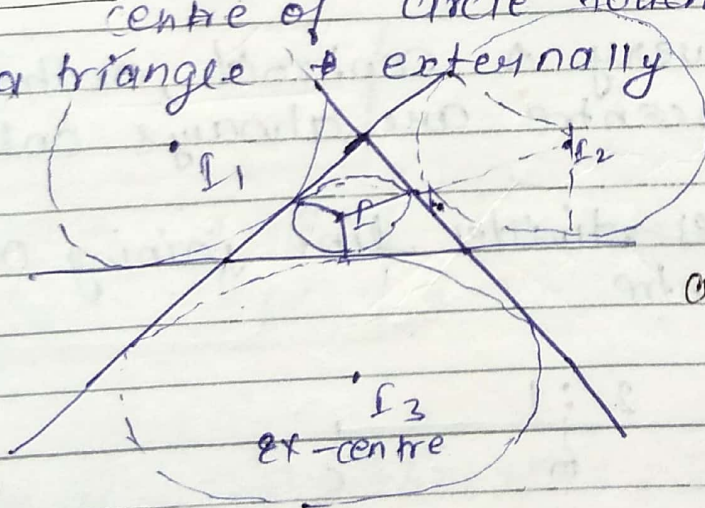 centre of circle
a triangle externally
I1
I2
I
I3
ex-centre